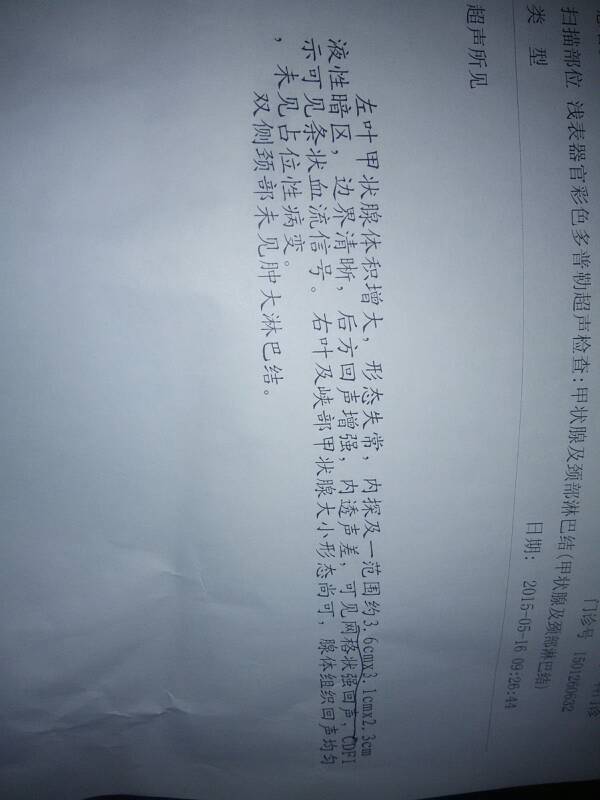 门诊号 1501260632
扫描部位 浅表器官彩色多普勒超声检查:甲状腺及颈部淋巴结(甲状腺及颈部淋巴结)
类 型
日期: 2015-05-16 09:26:44
超声所见
左叶甲状腺体积增大, 形态失常, 内探及一范围约3.6cmx3.1cmx2.3cm
液性暗区, 边界清晰, 后方回声增强, 内透声差, 可见网格状强回声, CDFI
示可见条状血流信号。 右叶及峡部甲状腺大小形态尚可, 腺体组织回声均匀
, 未见占位性病变。
双侧颈部未见肿大淋巴结。